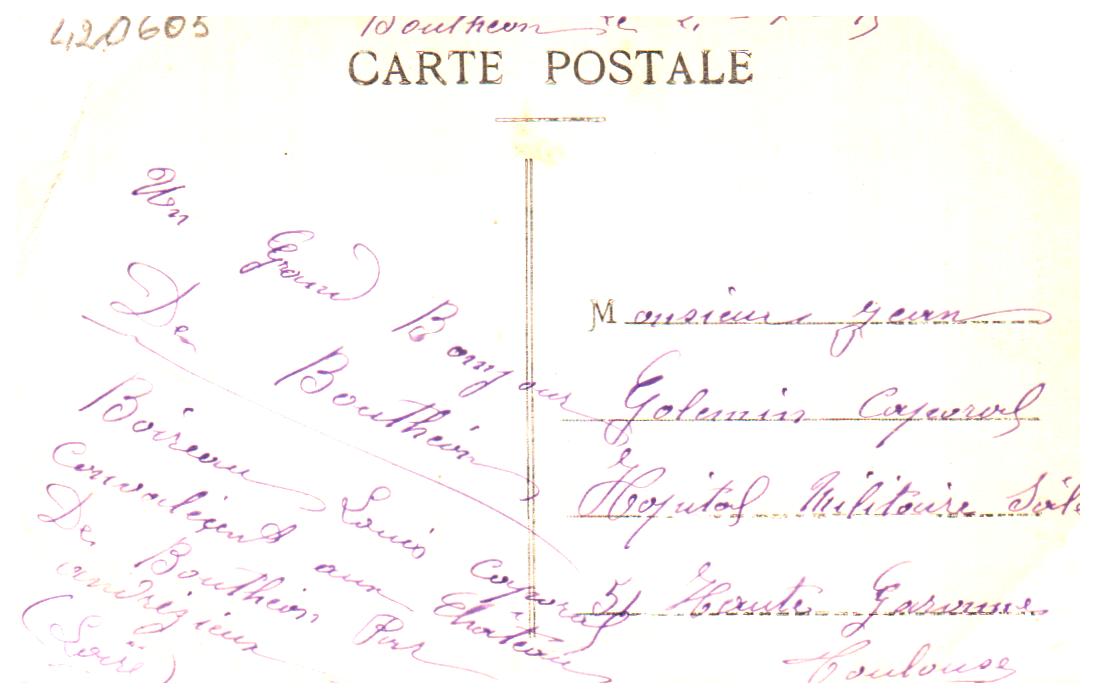 420605
Bouthéon le
CARTE POSTALE
Un Grand Bonjour
De Bouthéon
Boireau Louis caporal
convalesent aun Château
De Bouthéon Par
andrézieux
(Loire)
Monsieur Jean
Golemin Caporal
Hopital Militaire
51 Haute Garonne
Toulouse